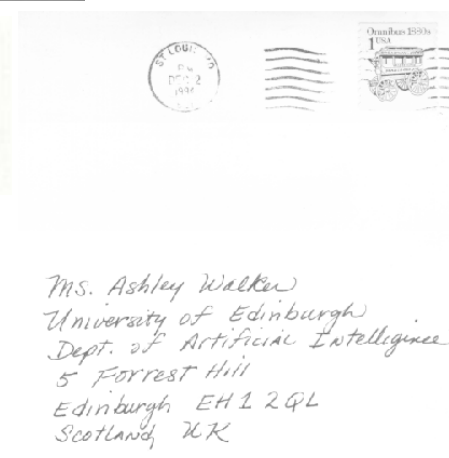 ST. LOUIS, MO
PM
DEC 2
1994
Omnibus 1880s
1 USA
Ms. Ashley Walker
University of Edinburgh
Dept. of Artificial Intelliginee
5 Forrest Hill
Edinburgh EH1 2QL
Scotland, UK